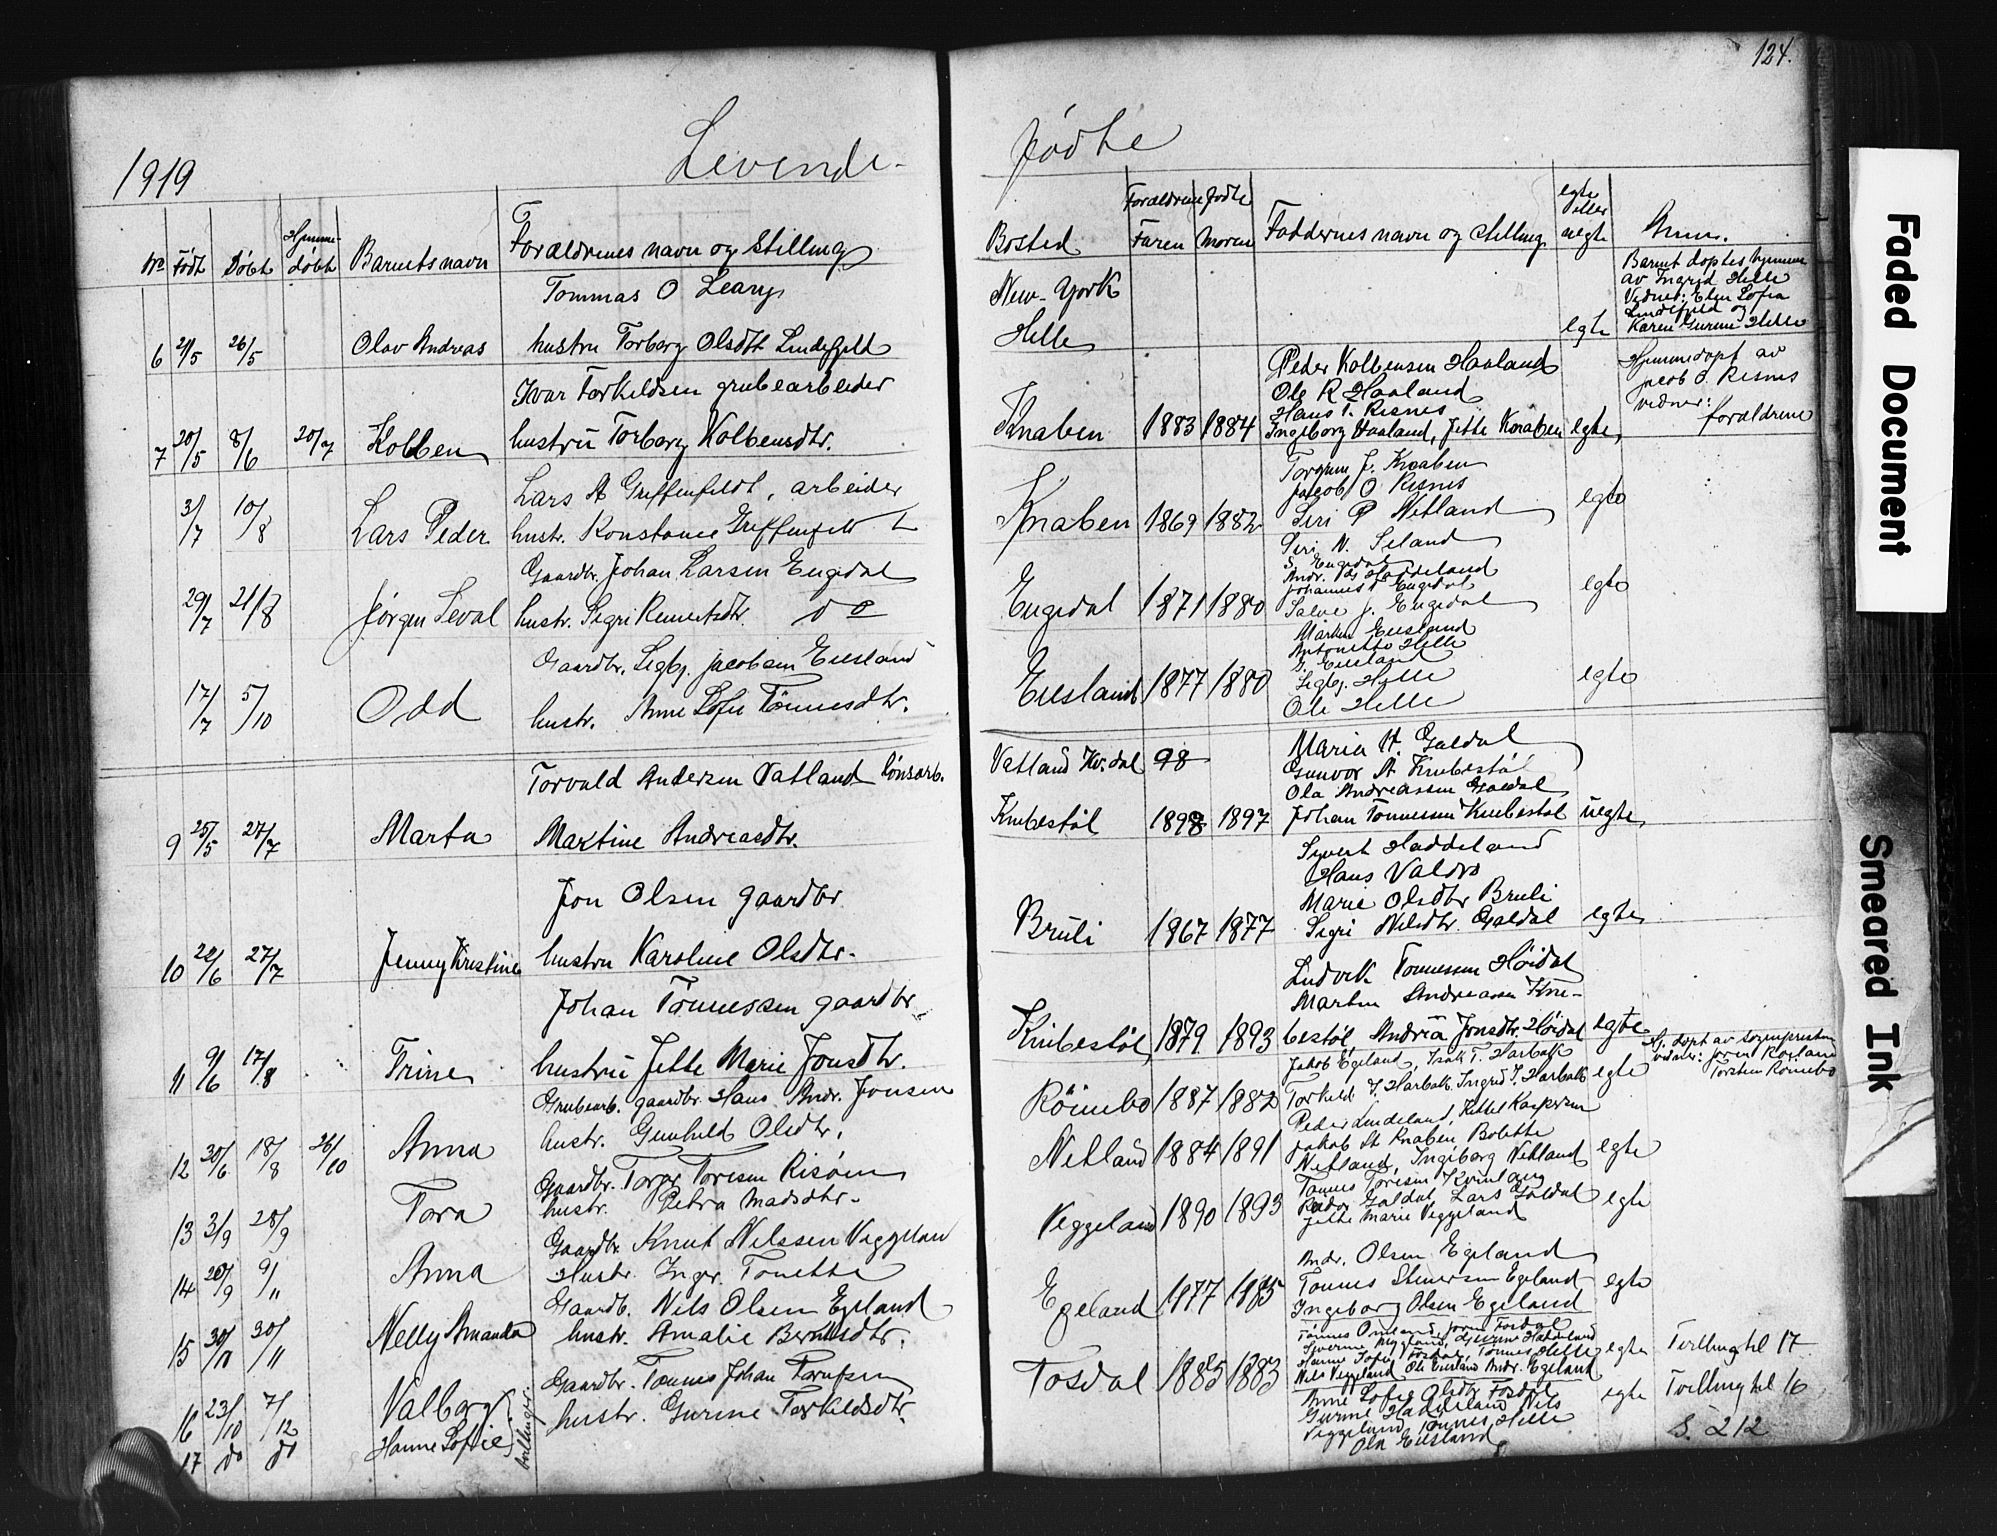 124.
1919 Levende fødte
No Født Døbt Hjemmedøbt Barnets navn Forældrenes navn og Stilling Bosted Forældrene fødte Faren Moren Faddernes navn og stilling egte eller uegte Anm.
Tommas O Leary New-York
6 21/5 26/5 Olav Andreas hustru Torborg Olsdtr Lindefjeld Helle egte
Barnet døptes hjemme
av Ingrid Helle
Vidner: Elen Sofia
Lindefjeld og
Karen Gurine Helle
Ivar Torkildsen grubearbeider
7 20/5 8/6 20/7 Kolben hustru Torborg Kolbensdtr. Knaben 1883 1884 egte
Peder Kolbensen Haaland
Ole R Haaland
Hans T. Risnes
Ingeborg Haaland, Jette Knaben
Hjemmedøpt av
Jacob O. Risnes
vidner:
forældrene
Lars A Griffenfeldt, arbeider
3/7 10/8 Lars Peder hustr. Konstance Griffenfelt Knaben 1869 1882 egte
Torgrim J. Knaben
Jacob O Risnes
Siri P Netland
Siri N. Seland
Gaardbr. Johan Larsen Engedal
29/7 21/8 Jørgen Seval hustr. Sigri Reinertsdtr. do Engedal 1871 1880 egte
S. Engedal
Andr. Haddeland
Johannes Engedal
Salve J. Engedal
Gaardbr. Sigbj. Jacobsen Eiesland
17/7 5/10 Odd hustr. Anne Sofie Tønnesdtr. Eiesland 1877 1880 egte
Martin Eiesland
Antonette Helle
G. Eiesland
Sigbj. Helle
Ole Helle
Torvald Andersen Vatland lønsarb. Vatland Kv.dal 98
9 25/5 27/7 Marta Martine Andreasdtr. Knibestøl 1898 1897 uegte
Maria A. Galdal
Gunvor A. Knibestøl
Ola Andreassen Galdal
Johan Tønnessen Knibestøl
Jon Olsen gaardbr
10 22/6 27/7 Jenny Kristine hustru Karoline Olsdtr. Bruli 1867 1877 egte
Syvert Haddeland
Hans Valdro
Marie Olsdtr Bruli
Sigri Nilsdtr. Galdal
Johan Tønnessen gaardbr.
11 9/6 17/8 Trine hustru Jette Marie Jonsdtr. Knibestøl 1879 1893 egte
Ludvik Tønnessen Høidal
Martin Andreassen Kni-
bestøl, Andrea Jonsdtr. Høidal
Grubearb. gaardbr. Hans Andr. Jonsen
12 30/6 18/8 26/10 Anna hustr. Gunhild Olsdtr. Rømebo 1887 1882 egte
Jakob Egeland, Isak T. Harbak
Torkild I. Harbak. Ingrid I. Harbak
Hj. døpt av sognepresten
vidner: Joren Roiland
Torsten Romebo
Gaardbr. Torgr. Toresen Risøen
13 3/9 28/9 Tora hustr. Petra Madsdtr. Netland 1884 1891 egte
Peder Lindeland, Kittel Kaspersen
Jakob A Knaben Bolette
Netland, Ingeborg Netland
Gaardbr. Knut Nilssen Veggeland
14 20/9 9/11 Anna Hustr. Ingr. Tonette Veggeland 1890 1893 egte
Tønnes Toresen Kvinlaug
Peder Galdal, Lars Galdal
Jette Marie Veggeland
Gaardb. Nils Olsen Egeland
15 30/10 30/11 Nelly Amanda hustr. Amalie Berntsdtr. Egeland 1877 1885 egte
Andr. Olsen Egeland
Tønnes Stenersen Egeland
Ingeborg Olsen Egeland
Gaardbr. Tønnes Johan Tornfsen
16 23/10 7/12 Valborg tvillinger hustr. Gurine Torkildsdtr. Tosdal 1885 1883 egte Tvilling til 17
Hanne Sofie Fosdal, Tønnes Helle
Nils Veggeland Ole Eiesland Andr. Egeland
17 do do Hanne Sofie egte Tvilling til 16
Anne Sofie Olsdtr Fosdal
Gurine Haddeland Nils
Veggeland Tønnes Helle
Ola Eiesland
S. 212
Faded Document
Smeared Ink